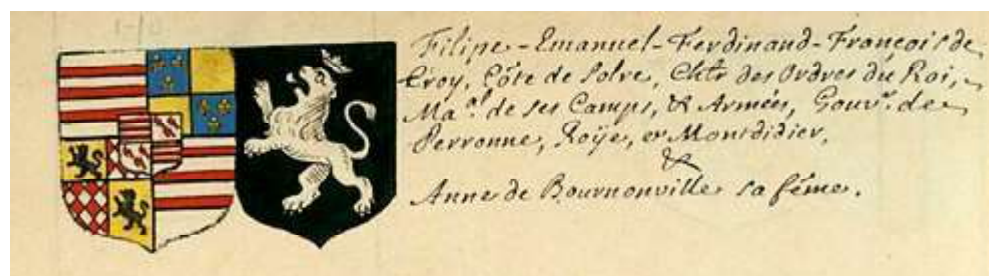 Filipe-Emanuel-Ferdinand-François de
Croÿ, Cõte de Solre, Chlr. des Ordres du Roi,
Ma.al de ses Camps, & Armées, Gouv.r de
Perronne, Roÿe, et Montdidier,
&
Anne de Bournonville sa fẽme.